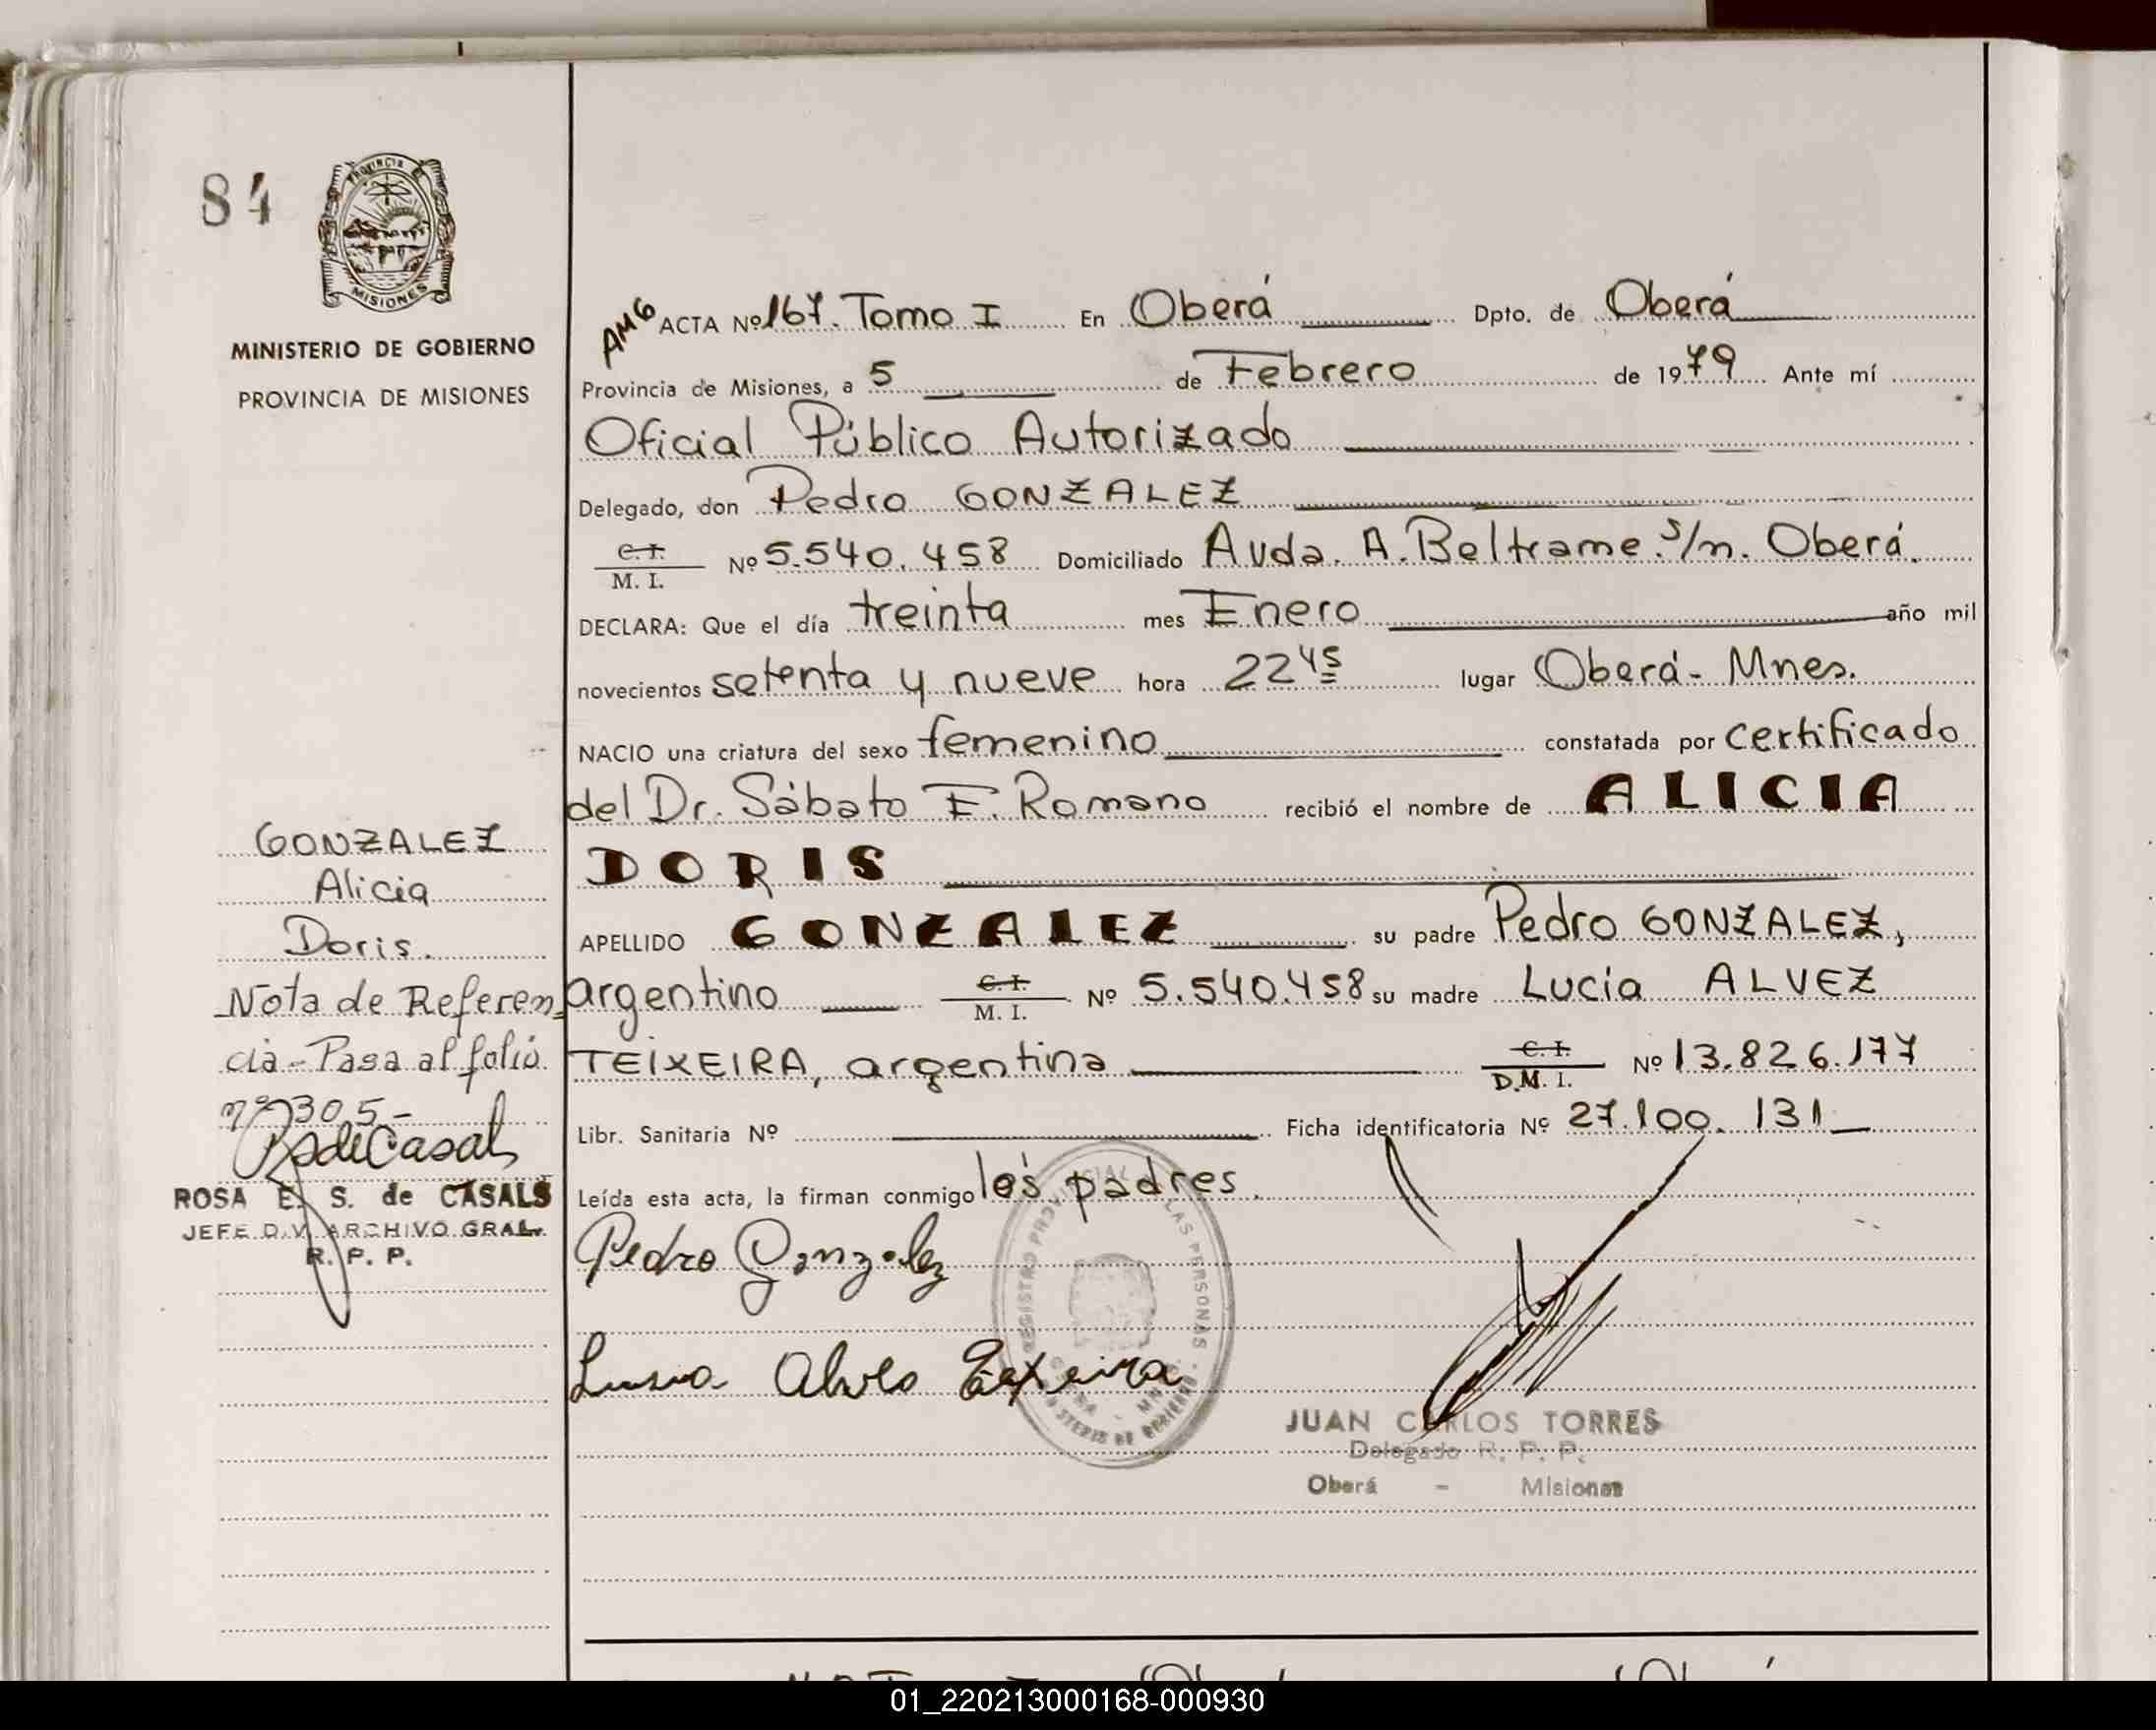 84
PROVINCIA DE
MISIONES
MINISTERIO DE GOBIERNO
PROVINCIA DE MISIONES
AMG ACTA Nº 167. Tomo I En Oberá Dpto. de Oberá
Provincia de Misiones, a 5 de Febrero de 1979 Ante mí
Oficial Público Autorizado
Delegado, don Pedro GONZALEZ
C. I.
M. I. Nº 5.540.458 Domiciliado Avda. A. Beltrame s/n. Oberá.
DECLARA: Que el día treinta mes Enero año mil
novecientos setenta y nueve hora 22 45 lugar Oberá - Mnes.
NACIO una criatura del sexo femenino constatada por certificado
del Dr. Sábato E. Romano recibió el nombre de ALICIA
DORIS
APELLIDO GONZALEZ su padre Pedro GONZALEZ,
argentino C. I. M. I. Nº 5.540.458 su madre Lucía ALVEZ
TEIXEIRA, argentina C. I. D.M. I. Nº 13.826.177
Libr. Sanitaria Nº Ficha identificatoria Nº 27.100.131
Leída esta acta, la firman conmigo los padres.
Pedro Gonzalez
Lusia Alves Teixeira
JUAN CARLOS TORRES
Delegado R. P. P.
Oberá - Misiones
GONZALEZ
Alicia
Doris.
Nota de Referen=
cia - Pasa al folio
nº 305 -
ROSA E. S. de CASALS
JEFE DIV. ARCHIVO GRAL.
R. P. P.
01_220213000168-000930